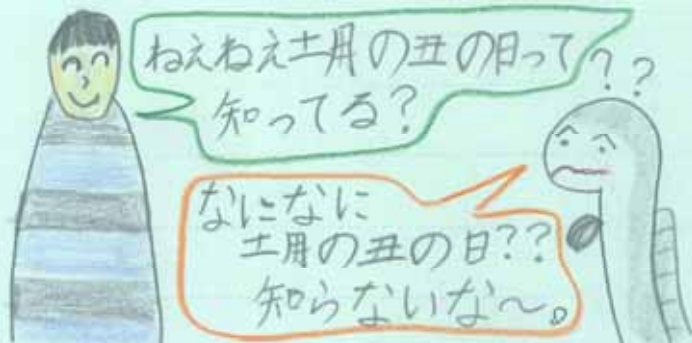 ねえねえ土用の丑の日って
知ってる?
??
なになに
土用の丑の日??
知らないな～。